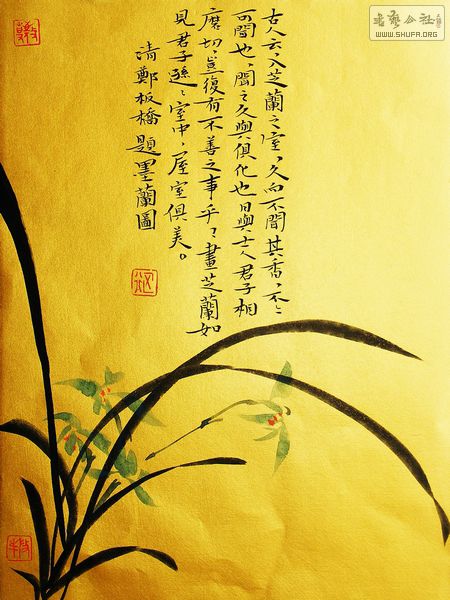 書藝公社
WWW.SHUFA.ORG
古人云，入芝蘭之室，久而不聞其香，不〻
可聞也，聞之久與俱化也日與士人君子相
磨切，豈復有不善之事乎〻畫芝蘭如
見君子遜〻室中，屋室俱美。
清鄭板橋題墨蘭圖